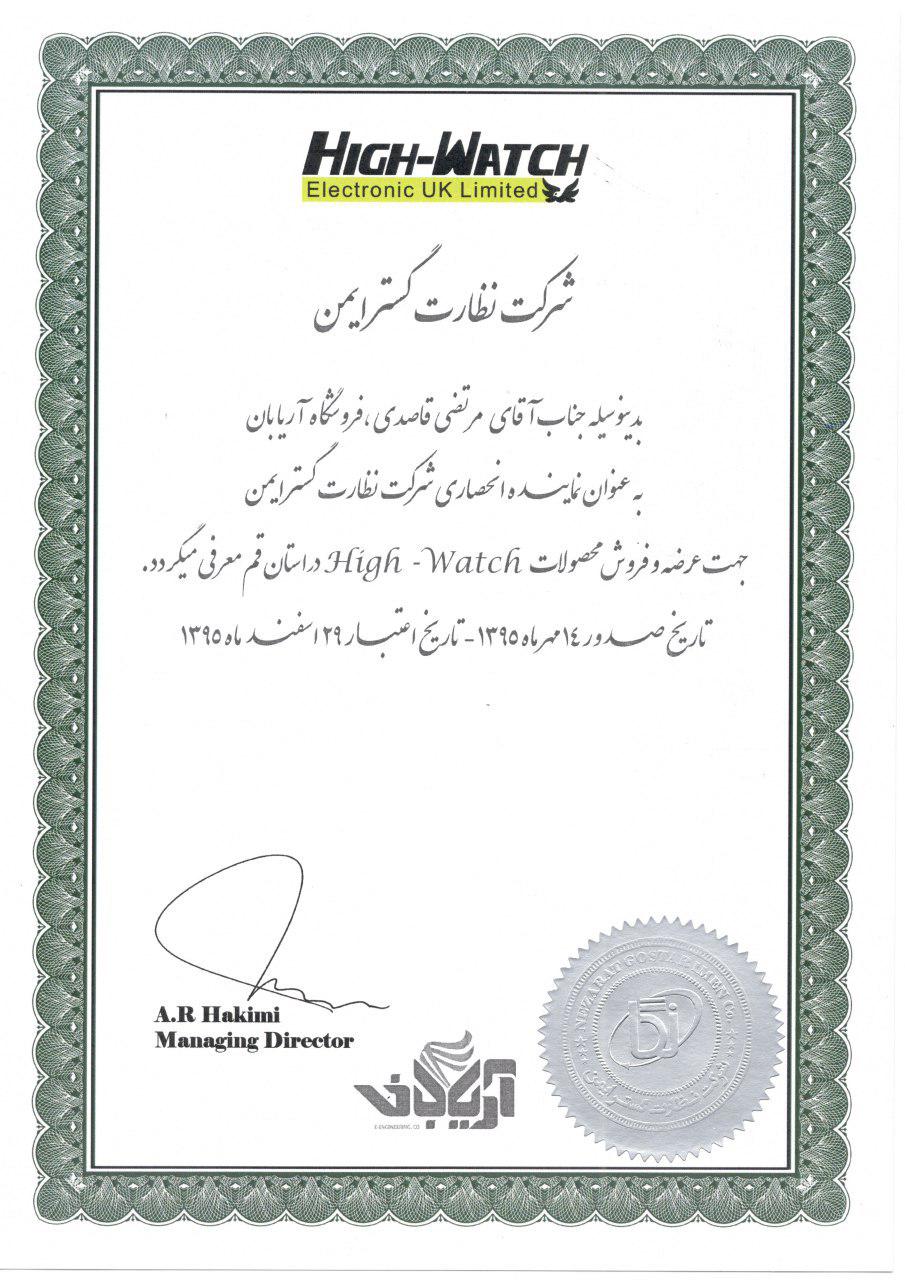 HIGH-WATCH
Electronic UK Limited
شرکت نظارت گستر ایمن
بدینوسیله جناب آقای مرتضی قاصدی ،فروشگاه آریابان
به عنوان نماینده انحصاری شرکت نظارت گستر ایمن
جهت عرضه و فروش محصولات High -Watch در استان قم معرفی میگردد.
تاریخ صدور ١٤ مهر ماه ١٣٩٥ - تاریخ اعتبار ٢٩ اسفند ماه ١٣٩٥
A.R Hakimi
Managing Director
آریابان
E-ENGINEERING. CO
NEZARAT GOSTAR IMEN Co.
شرکت نظارت گستر ایمن